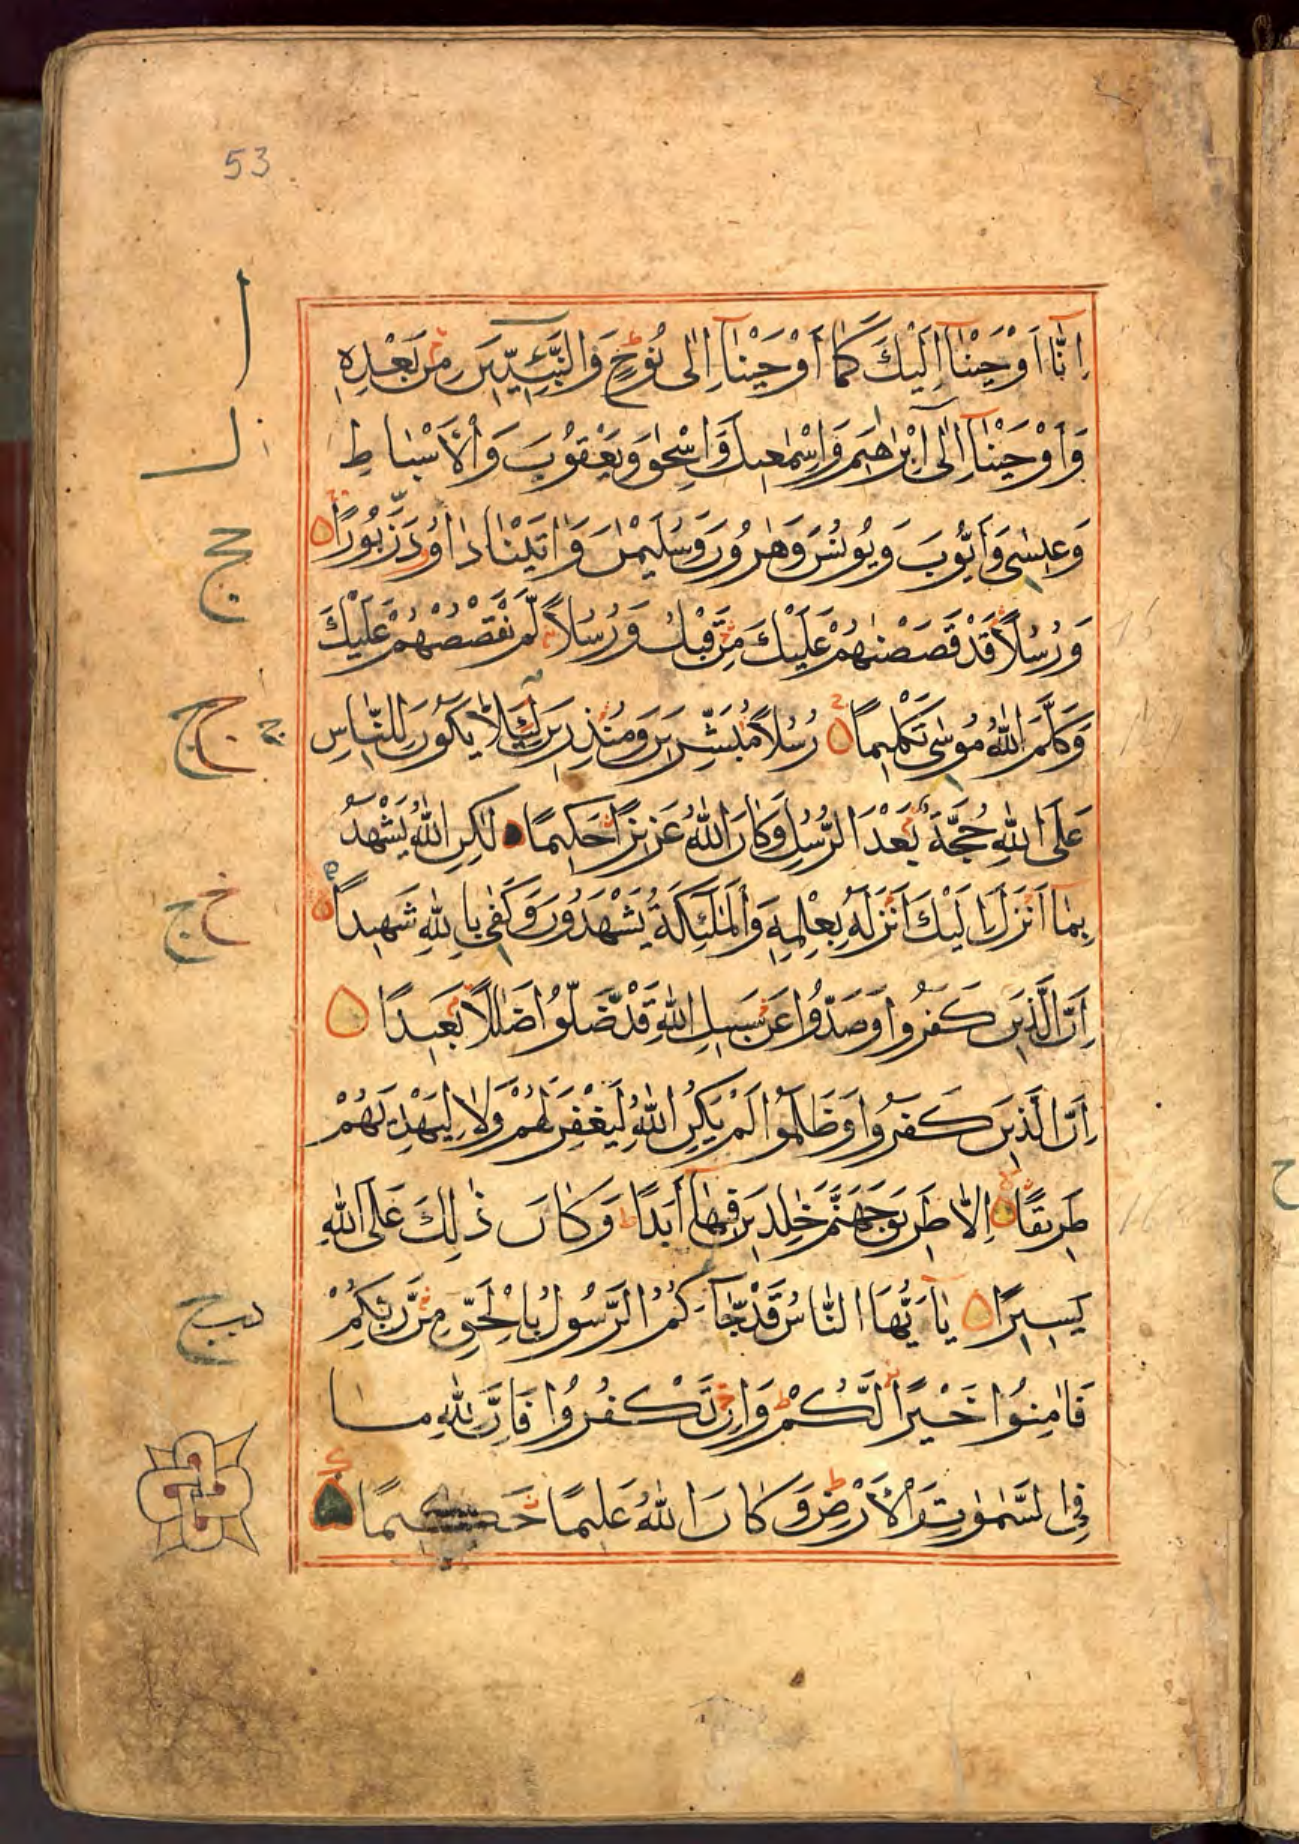 53
اِنَّا اَوْحَيْنَا اِلَيْكَ كَمَا اَوْحَيْنَا اِلٰى نُوْحٍ وَالنَّبِيِّيْنَ مِنْ بَعْدِهٖ
وَاَوْحَيْنَا اِلٰى اِبْرٰهِيْمَ وَاِسْمٰعِيْلَ وَاِسْحٰقَ وَيَعْقُوْبَ وَالْاَسْبَاطِ
وَعِيْسٰى وَاَيُّوْبَ وَيُوْنُسَ وَهٰرُوْنَ وَسُلَيْمٰنَ وَاٰتَيْنَا دَاوُدَ زَبُوْرًا
وَرُسُلًا قَدْ قَصَصْنٰهُمْ عَلَيْكَ مِنْ قَبْلُ وَرُسُلًا لَّمْ نَقْصُصْهُمْ عَلَيْكَ
وَكَلَّمَ اللّٰهُ مُوْسٰى تَكْلِيْمًا رُسُلًا مُبَشِّرِيْنَ وَمُنْذِرِيْنَ لِئَلَّا يَكُوْنَ لِلنَّاسِ
عَلَى اللّٰهِ حُجَّةٌ بَعْدَ الرُّسُلِ وَكَانَ اللّٰهُ عَزِيْزًا حَكِيْمًا لٰكِنِ اللّٰهُ يَشْهَدُ
بِمَا اَنْزَلَ اِلَيْكَ اَنْزَلَهٗ بِعِلْمِهٖ وَالْمَلٰئِكَةُ يَشْهَدُوْنَ وَكَفٰى بِاللّٰهِ شَهِيْدًا
اِنَّ الَّذِيْنَ كَفَرُوا وَصَدُّوْا عَنْ سَبِيْلِ اللّٰهِ قَدْ ضَلُّوْا ضَلٰلًا بَعِيْدًا
اِنَّ الَّذِيْنَ كَفَرُوا وَظَلَمُوا لَمْ يَكُنِ اللّٰهُ لِيَغْفِرَ لَهُمْ وَلَا لِيَهْدِيَهُمْ
طَرِيْقًا اِلَّا طَرِيْقَ جَهَنَّمَ خٰلِدِيْنَ فِيْهَا اَبَدًا وَكَانَ ذٰلِكَ عَلَى اللّٰهِ
يَسِيْرًا يَا اَيُّهَا النَّاسُ قَدْ جَاءَكُمُ الرَّسُوْلُ بِالْحَقِّ مِنْ رَّبِّكُمْ
فَاٰمِنُوْا خَيْرًا لَّكُمْ وَاِنْ تَكْفُرُوْا فَاِنَّ لِلّٰهِ مَا
فِي السَّمٰوٰتِ وَالْاَرْضِ وَكَانَ اللّٰهُ عَلِيْمًا حَكِيْمًا